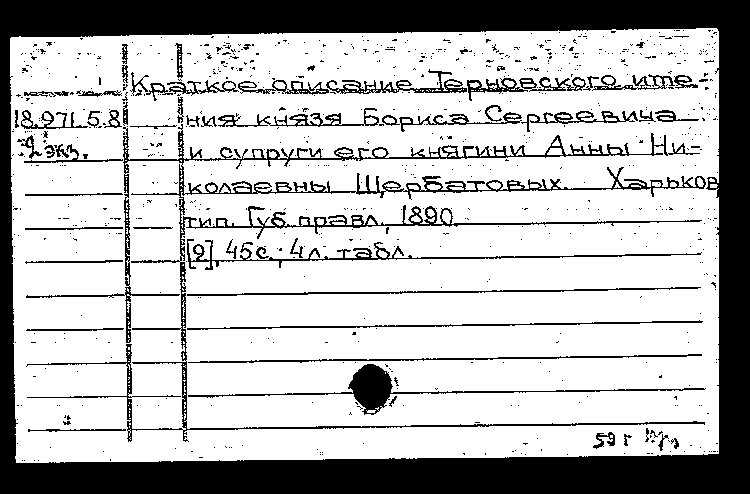 Краткое описание Терновского име-
18.971.5.8 ния князя Бориса Сергеевича
2 экз. и супруги его княгини Анны Ни-
колаевны Щербатовых. Харьков
тип. Губ. правл., 1890.
[2], 45 с.; 4 л. табл.
59 г